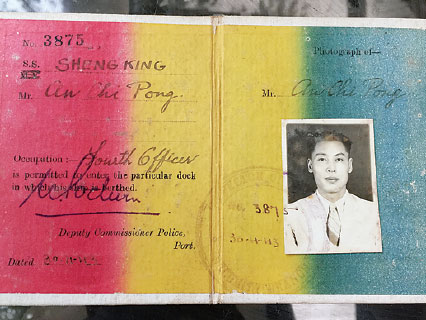 No. 3875
S.S. SHENGKING
Mr. An Chi Pong.
Occupation :— Fourth Officer
is permitted to enter the particular dock
in which his ship is berthed.
Deputy Commissioner Police,
Port.
Dated
Photograph of—
Mr. An Chi Pong
No. 3875